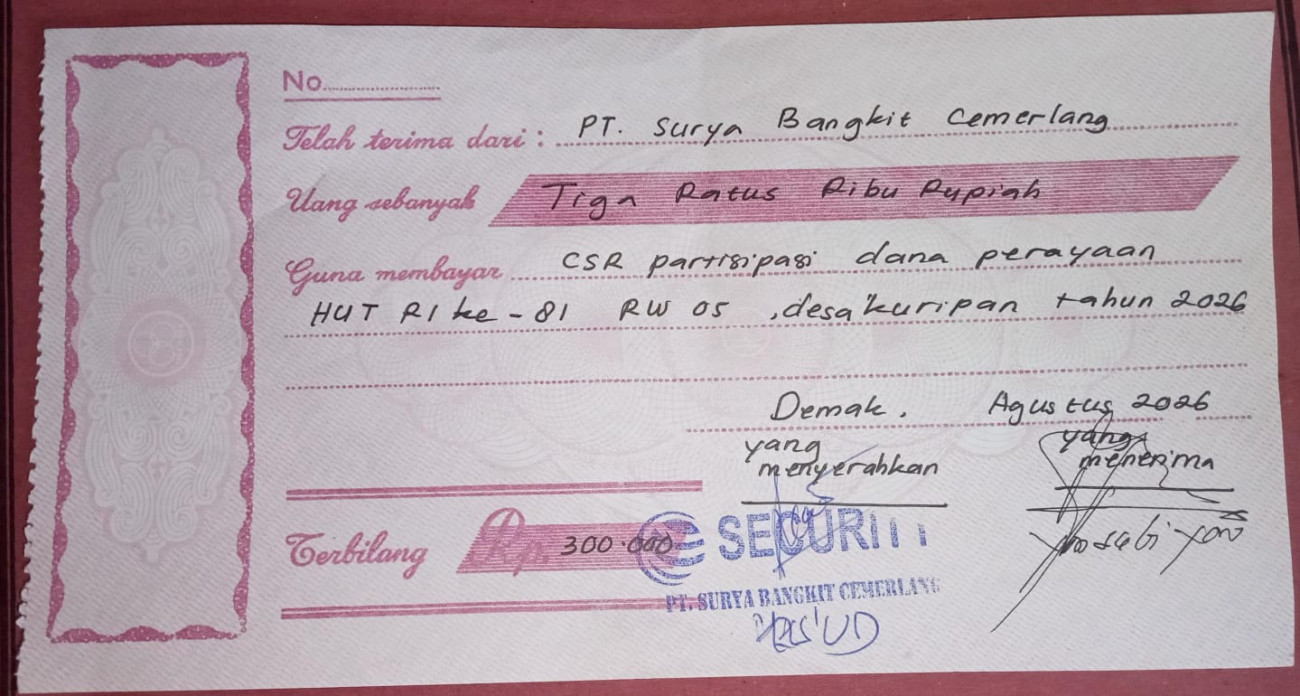 No.
Telah terima dari : PT. Surya Bangkit Cemerlang
Uang sebanyak Tiga Ratus Ribu Rupiah
Guna membayar CSR partisipasi dana perayaan
HUT RI ke - 81 RW 05 , desa kuripan tahun 2026
Demak, Agustus 2026
yang menyerahkan
yang menerima
Terbilang Rp. 300.000
SECURITY
PT. SURYA BANGKIT CEMERLANG